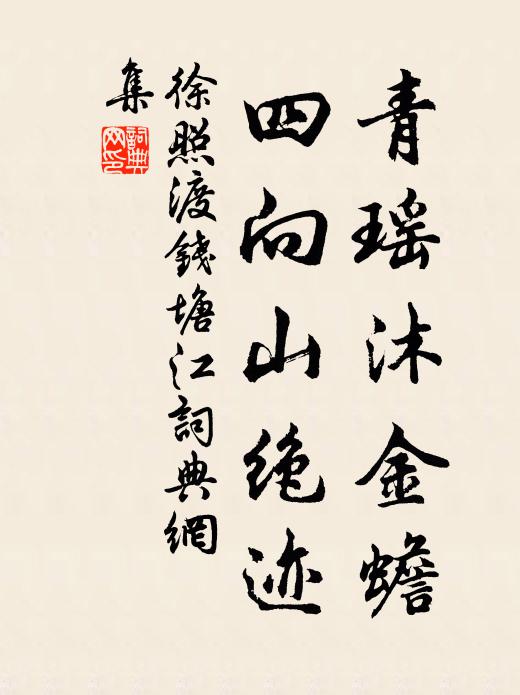 青瑶沐金蟾
四向山绝迹
徐照渡錢塘江詞典網
集
詞典
网印